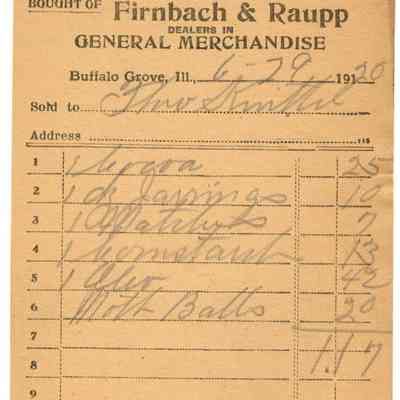 BOUGHT OF
Firnbach & Raupp
DEALERS IN
GENERAL MERCHANDISE
Buffalo Grove, Ill., 6-29 1920
Sold to Theo
Address
1 1 Cocoa 25
2 1 dz Jar rings 10
3 1 7
4 1 Cornstarch 13
5 1 Oleo 42
6 Moth Balls 20
7 1.17
8
9